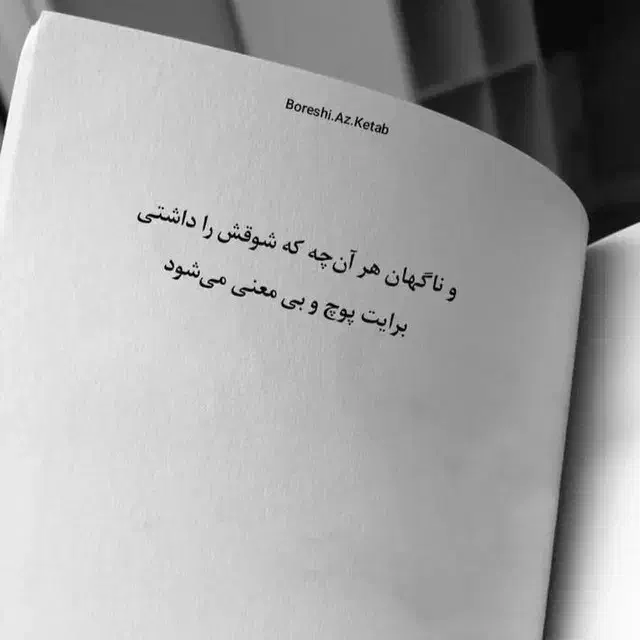 Boreshi.Az.Ketab
و ناگهان هر آن‌چه که شوقش را داشتی
برایت پوچ و بی معنی می‌شود